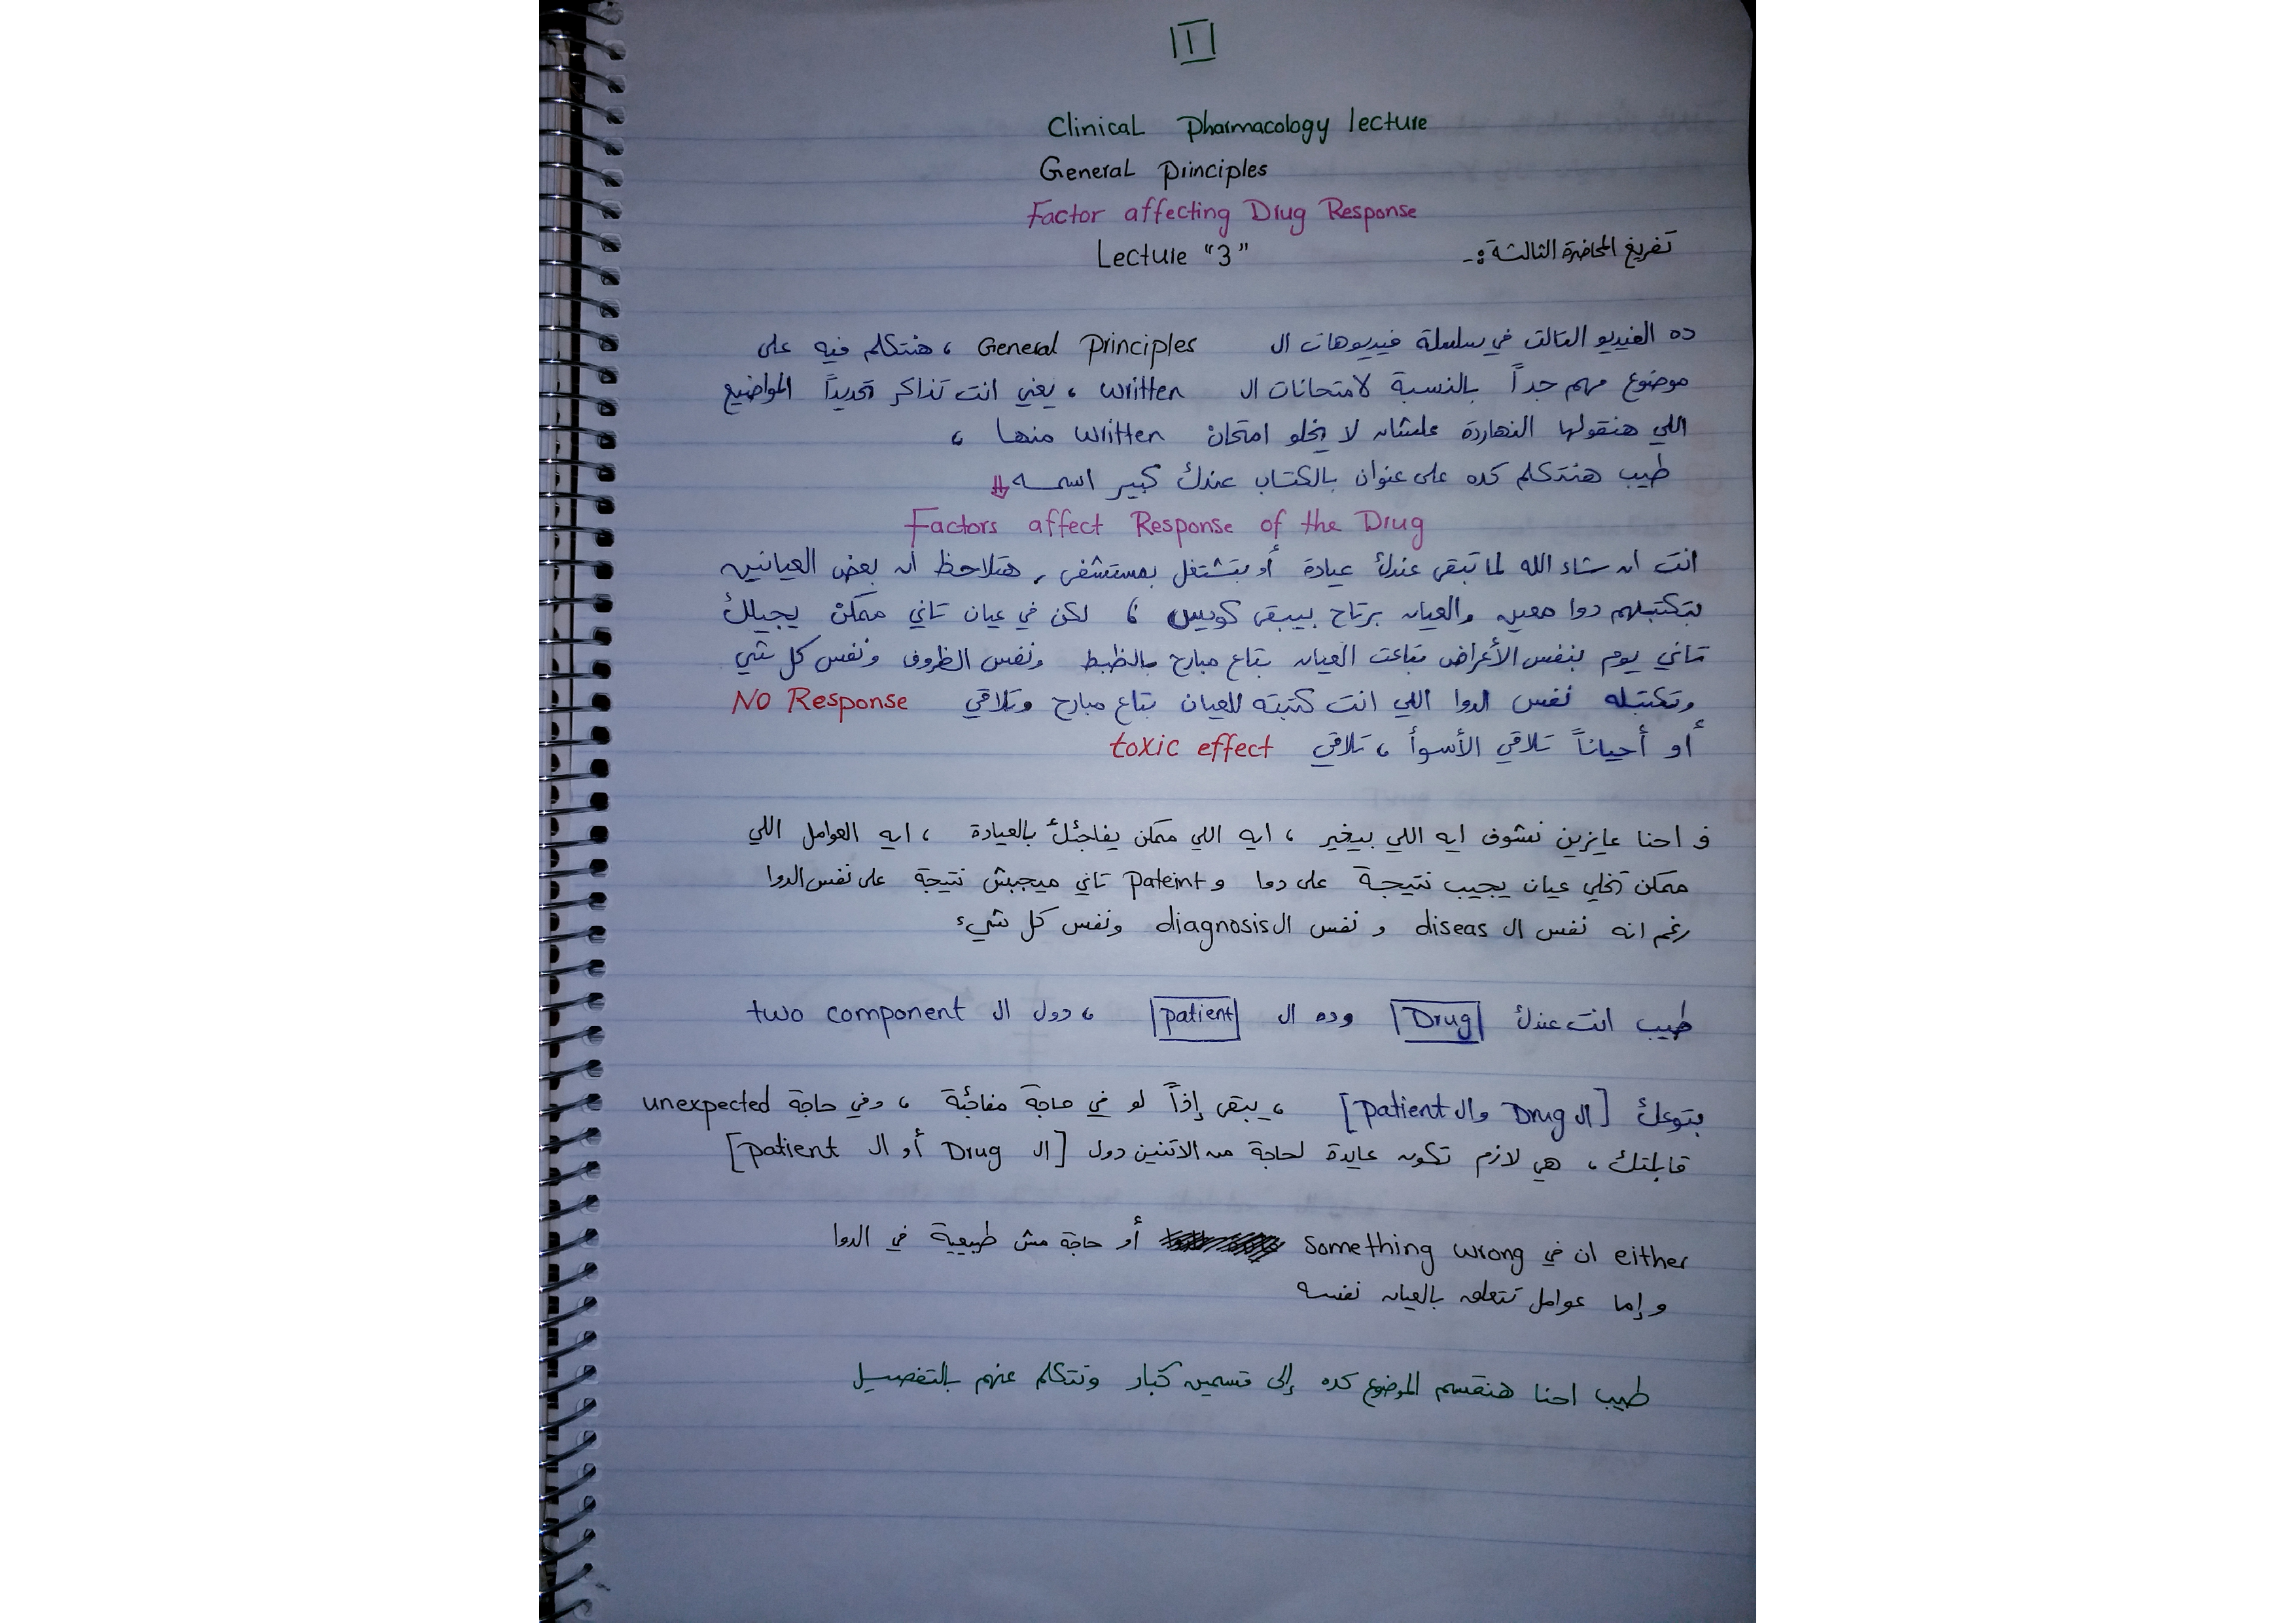 1
Clinical Pharmacology lecture
General Principles
Factor affecting Drug Response
Lecture "3"
تفريغ المحاضرة الثالثة :-
ده الفيديو التالت في سلسلة فيديوهات ال General Principles ، هنتكلم فيه على
موضوع مهم جداً بالنسبة لامتحانات ال written ، يعني انت تذاكر تحديداً المواضيع
اللي هنقولها النهاردة علشان لا يخلو امتحان written منها ،
طيب هنتكلم كده على عنوان بالكتاب عندك كبير اسمه ⇓
Factors affect Response of the Drug
انت ان شاء الله لما تبقى عندك عيادة أو بتشتغل بمستشفى , هتلاحظ ان بعض العيانين
بتكتبلهم دوا معين والعيان برتاح بيبقى كويس ، لكن في عيان تاني ممكن يجيلك
تاني يوم بنفس الأعراض بتاعت العيان بتاع مبارح بالظبط ونفس الظروف ونفس كل شي
وتكتبله نفس الدوا اللي انت كتبته للعيان بتاع مبارح وتلاقي No Response
أو أحياناً تلاقي الأسوأ ، تلاقي toxic effect
ف احنا عايزين نشوف ايه اللي بيغير ، ايه اللي ممكن يفاجئك بالعيادة ، ايه العوامل اللي
ممكن تخلي عيان يجيب نتيجة على دوا و pateint تاني ميجبش نتيجة على نفس الدوا
رغم انه نفس ال diseas و نفس ال diagnosis ونفس كل شيء
طيب انت عندك Drug وده ال patient ، دول ال two component
بتوعك [ال Drug وال patient] ، يبقى إذاً لو في حاجة مفاجئة ، وفي حاجة unexpected
قابلتك ، هي لازم تكون عايدة لحاجة من الاتنين دول [ال Drug أو ال patient]
either ان في something wrong أو حاجة مش طبيعية في الدوا
و إما عوامل تتعلق بالعيان نفسه
طيب احنا هنقسم الموضوع كده إلى قسمين كبار ونتكلم عنهم بالتفصيل